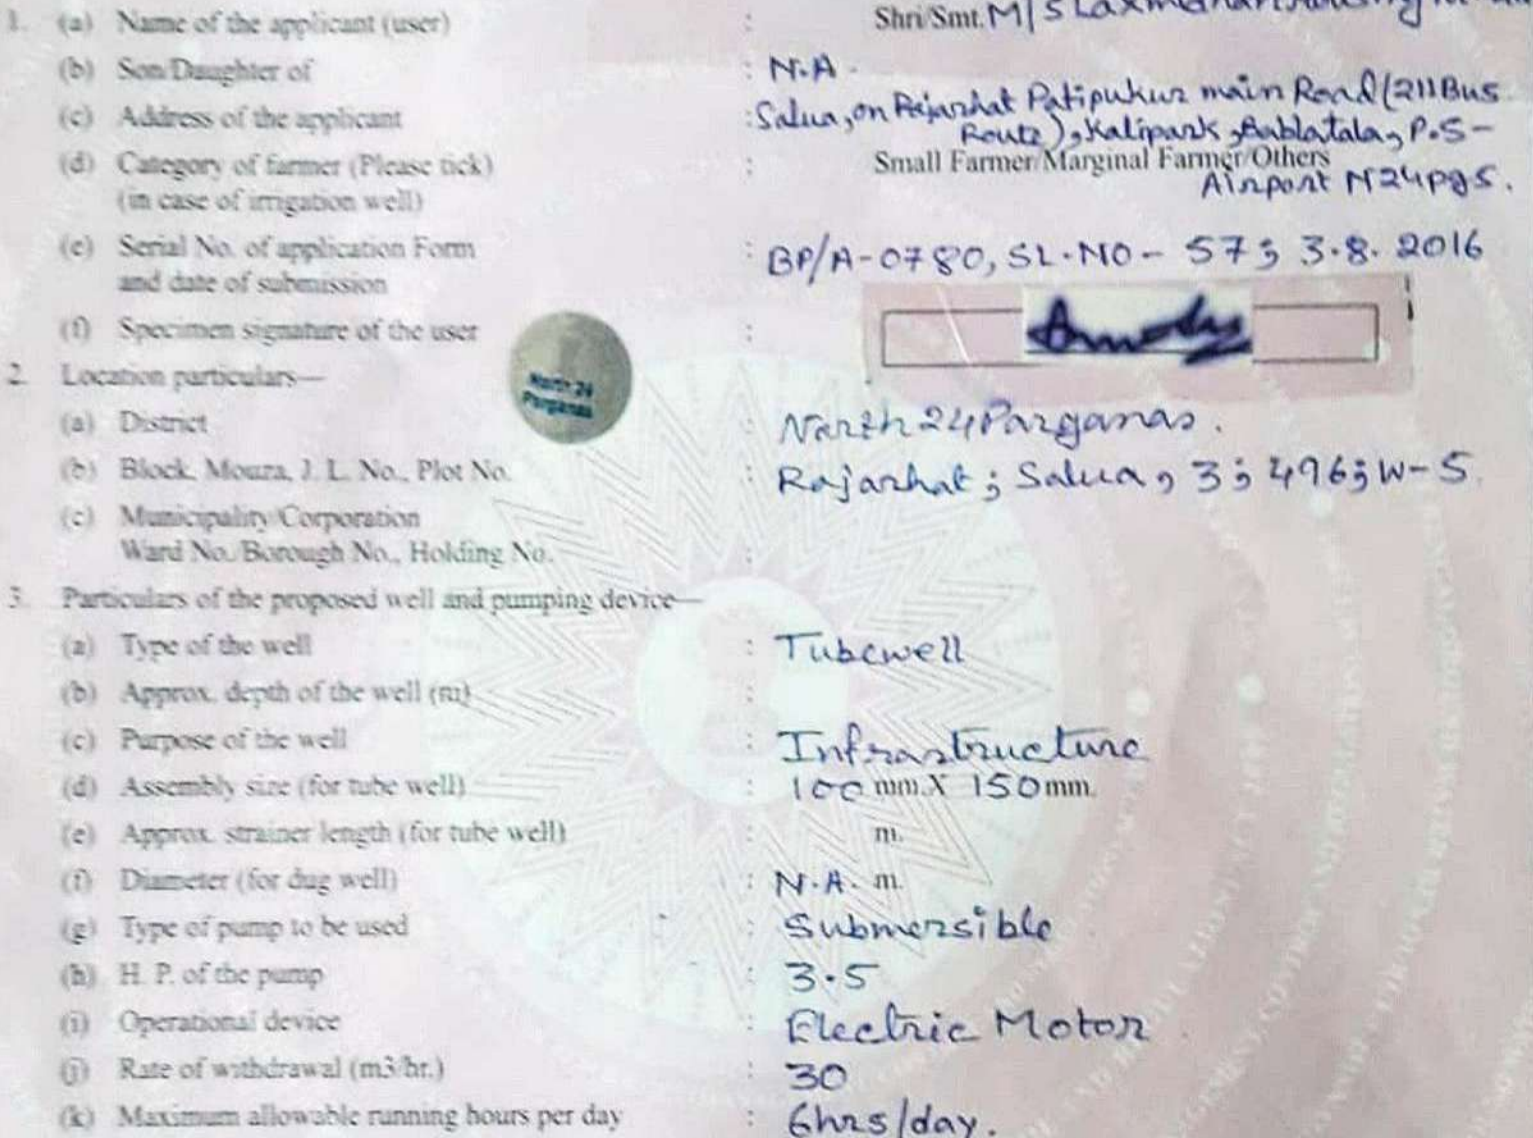 1. (a) Name of the applicant (user) : Shri/Smt. M/S
(b) Son/Daughter of : N.A.
(c) Address of the applicant : Salua, on Rajarhat Patipukur main Road (211 Bus
Route), Kalipark, Bablatala, P.S-
(d) Category of farmer (Please tick) : Small Farmer/Marginal Farmer/Others
Airport N24pgs.
(in case of irrigation well)
(e) Serial No. of application Form : BP/A-0780, SL.NO - 57; 3.8.2016
and date of submission
(f) Specimen signature of the user :
North 24
Parganas
2. Location particulars—
(a) District : North 24 Parganas.
(b) Block, Mouza, J. L. No., Plot No. : Rajarhat; Salua, 3; 496; W-5.
(c) Municipality/Corporation
Ward No./Borough No., Holding No. :
3. Particulars of the proposed well and pumping device—
(a) Type of the well : Tubewell
(b) Approx. depth of the well (m) :
(c) Purpose of the well : Infrastructure
(d) Assembly size (for tube well) : 100 mm. X 150 mm.
(e) Approx. strainer length (for tube well) : m.
(f) Diameter (for dug well) : N.A. m.
(g) Type of pump to be used : Submersible
(h) H. P. of the pump : 3.5
(i) Operational device : Electric Motor
(j) Rate of withdrawal (m3/hr.) : 30
(k) Maximum allowable running hours per day : 6hrs/day.